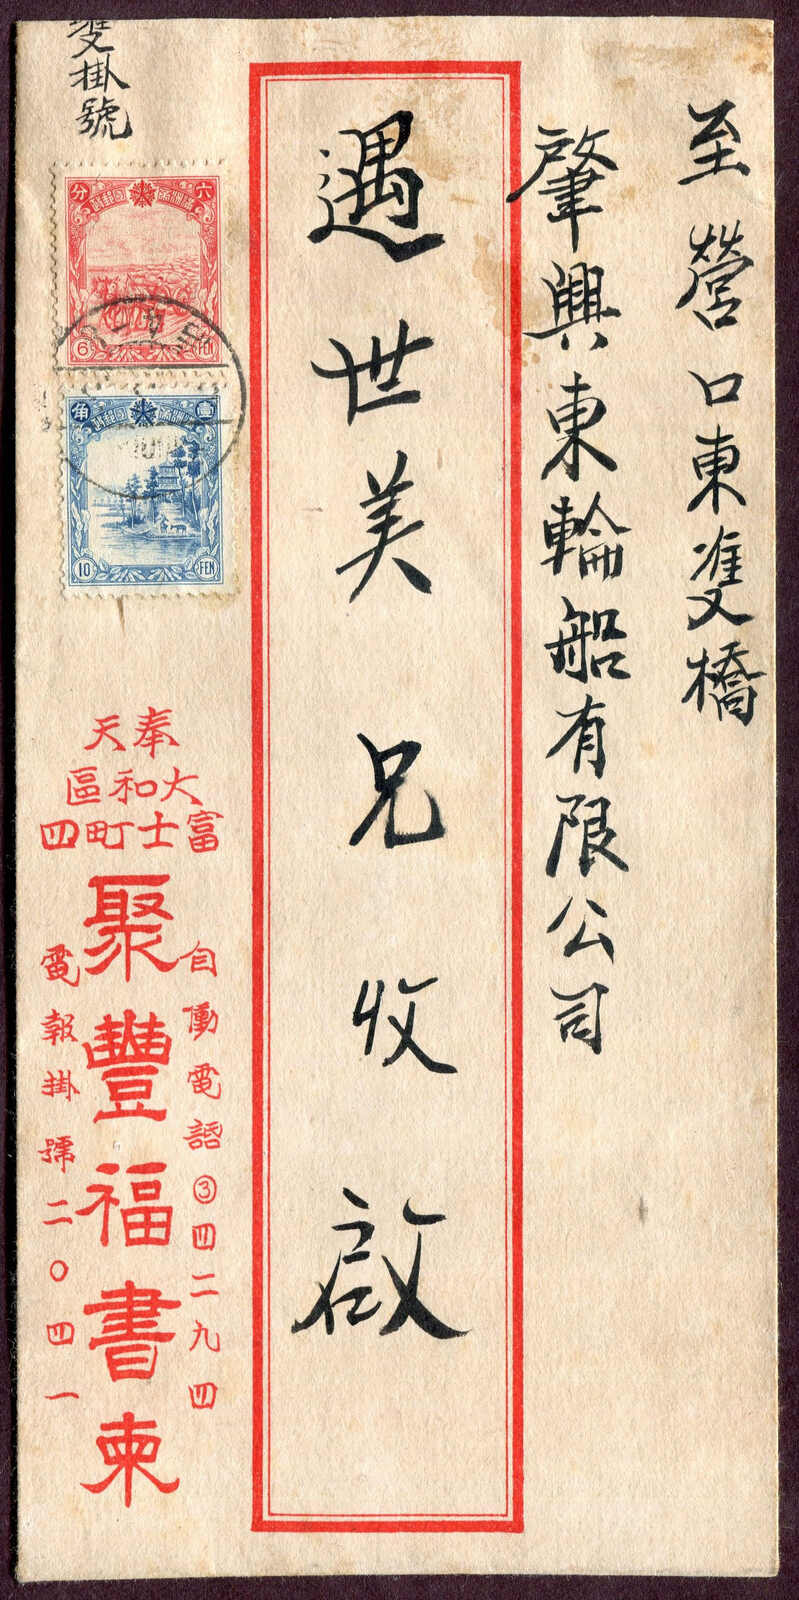 至營口東雙橋
肇興東輪船有限公司
遇世美兄收啟
雙掛號
六分
滿洲帝國郵政
6 FEN
壹角
滿洲帝國郵政
10 FEN
奉天
大和區
富士町四
自働電話③四二九四
聚豐福書柬
電報掛號二〇四一